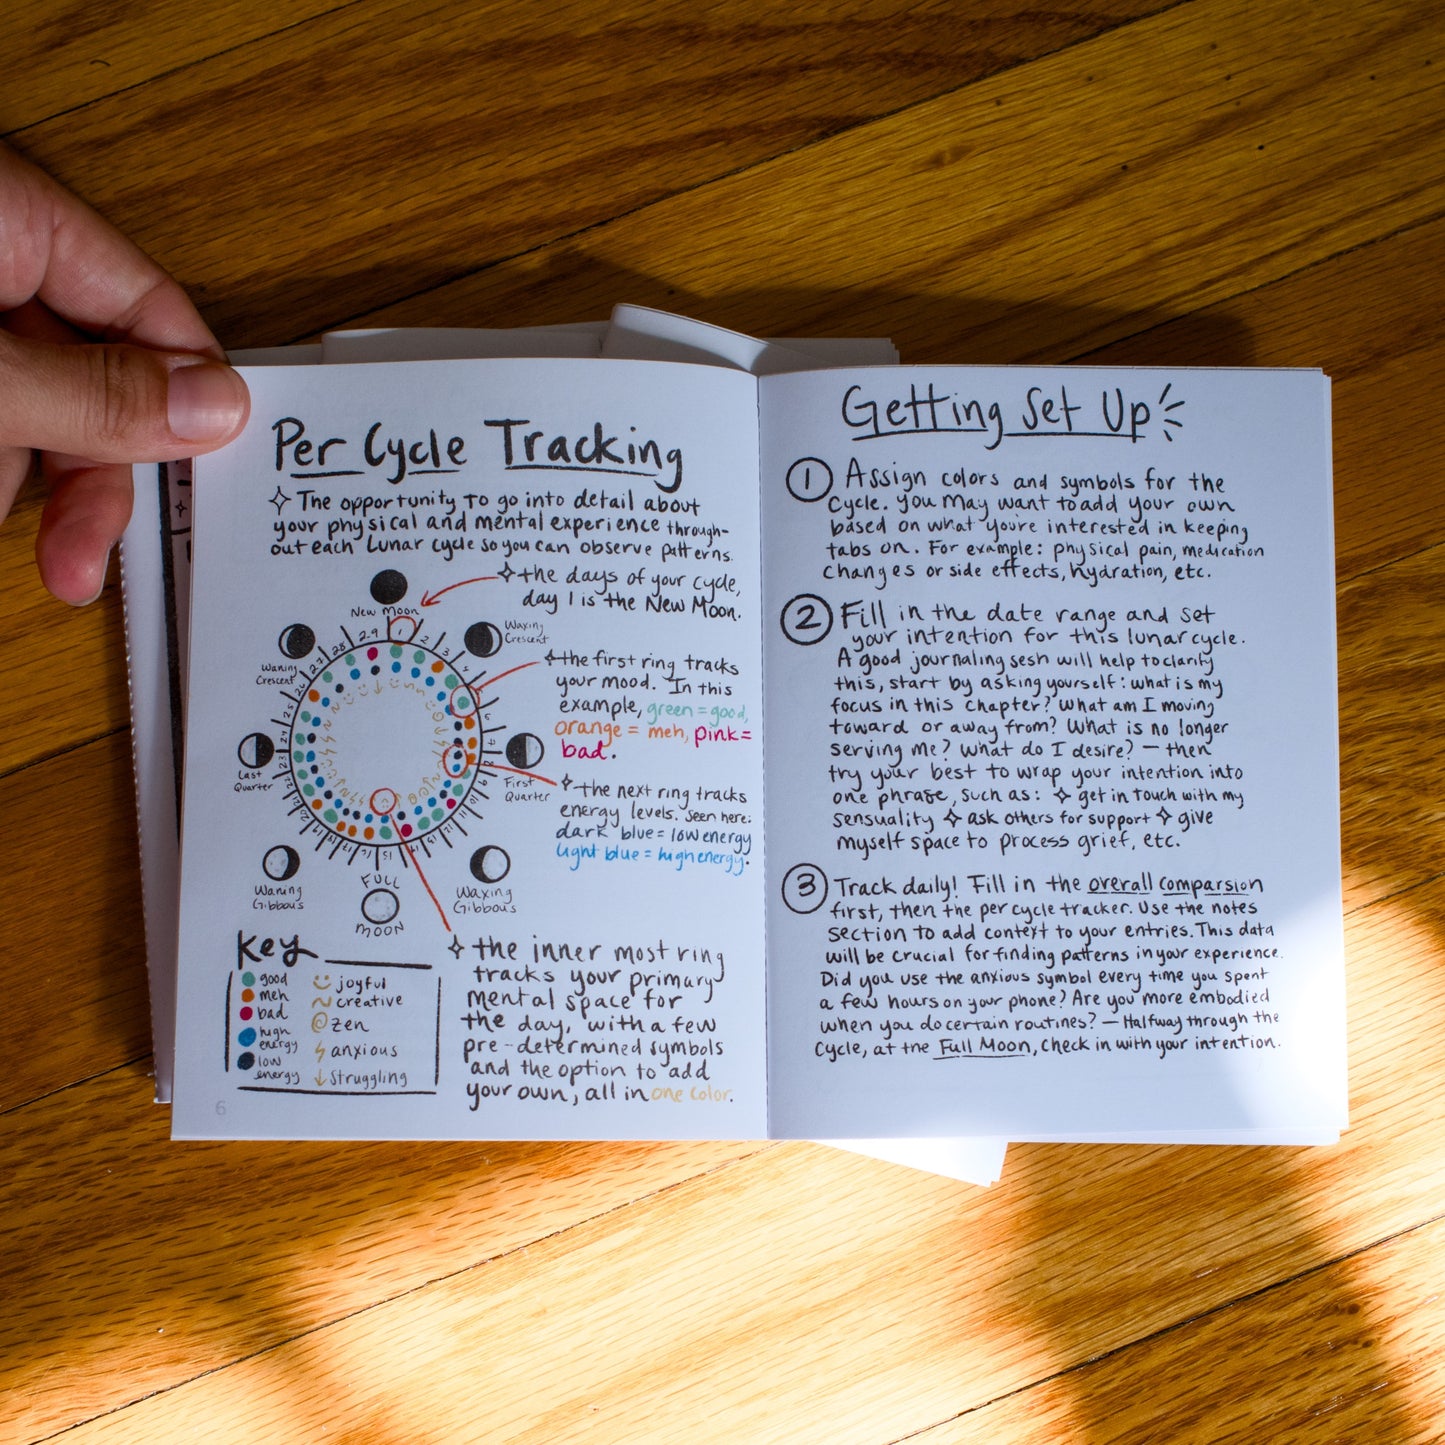 Per Cycle Tracking
✧ The opportunity to go into detail about
your physical and mental experience through-
out each Lunar cycle so you can observe patterns.
✧ the days of your cycle,
day 1 is the New Moon.
New Moon
Waxing
Crescent
First
Quarter
Waxing
Gibbous
FULL
MOON
Waning
Gibbous
Last
Quarter
Waning
Crescent
1
2
3
4
6
7
8
9
10
11
12
13
15
16
17
18
19
20
21
22
23
24
25
26
27
28
29
✧ the first ring tracks
your mood. In this
example, green = good,
orange = meh, pink =
bad.
✧ the next ring tracks
energy levels. Seen here:
dark blue = low energy
light blue = high energy.
✧ the inner most ring
tracks your primary
mental space for
the day, with a few
pre-determined symbols
and the option to add
your own, all in one color.
Key
good
meh
bad
high
energy
low
energy
joyful
creative
zen
anxious
struggling
6
Getting Set Up
1 Assign colors and symbols for the
cycle. You may want to add your own
based on what you're interested in keeping
tabs on. For example: physical pain, medication
changes or side effects, hydration, etc.
2 Fill in the date range and set
your intention for this lunar cycle.
A good journaling sesh will help to clarify
this, start by asking yourself: what is my
focus in this chapter? What am I moving
toward or away from? What is no longer
serving me? What do I desire? — then
try your best to wrap your intention into
one phrase, such as: ✧ get in touch with my
sensuality ✧ ask others for support ✧ give
myself space to process grief, etc.
3 Track daily! Fill in the overall comparsion
first, then the per cycle tracker. Use the notes
section to add context to your entries. This data
will be crucial for finding patterns in your experience.
Did you use the anxious symbol every time you spent
a few hours on your phone? Are you more embodied
when you do certain routines? — Halfway through the
Cycle, at the Full Moon, check in with your intention.